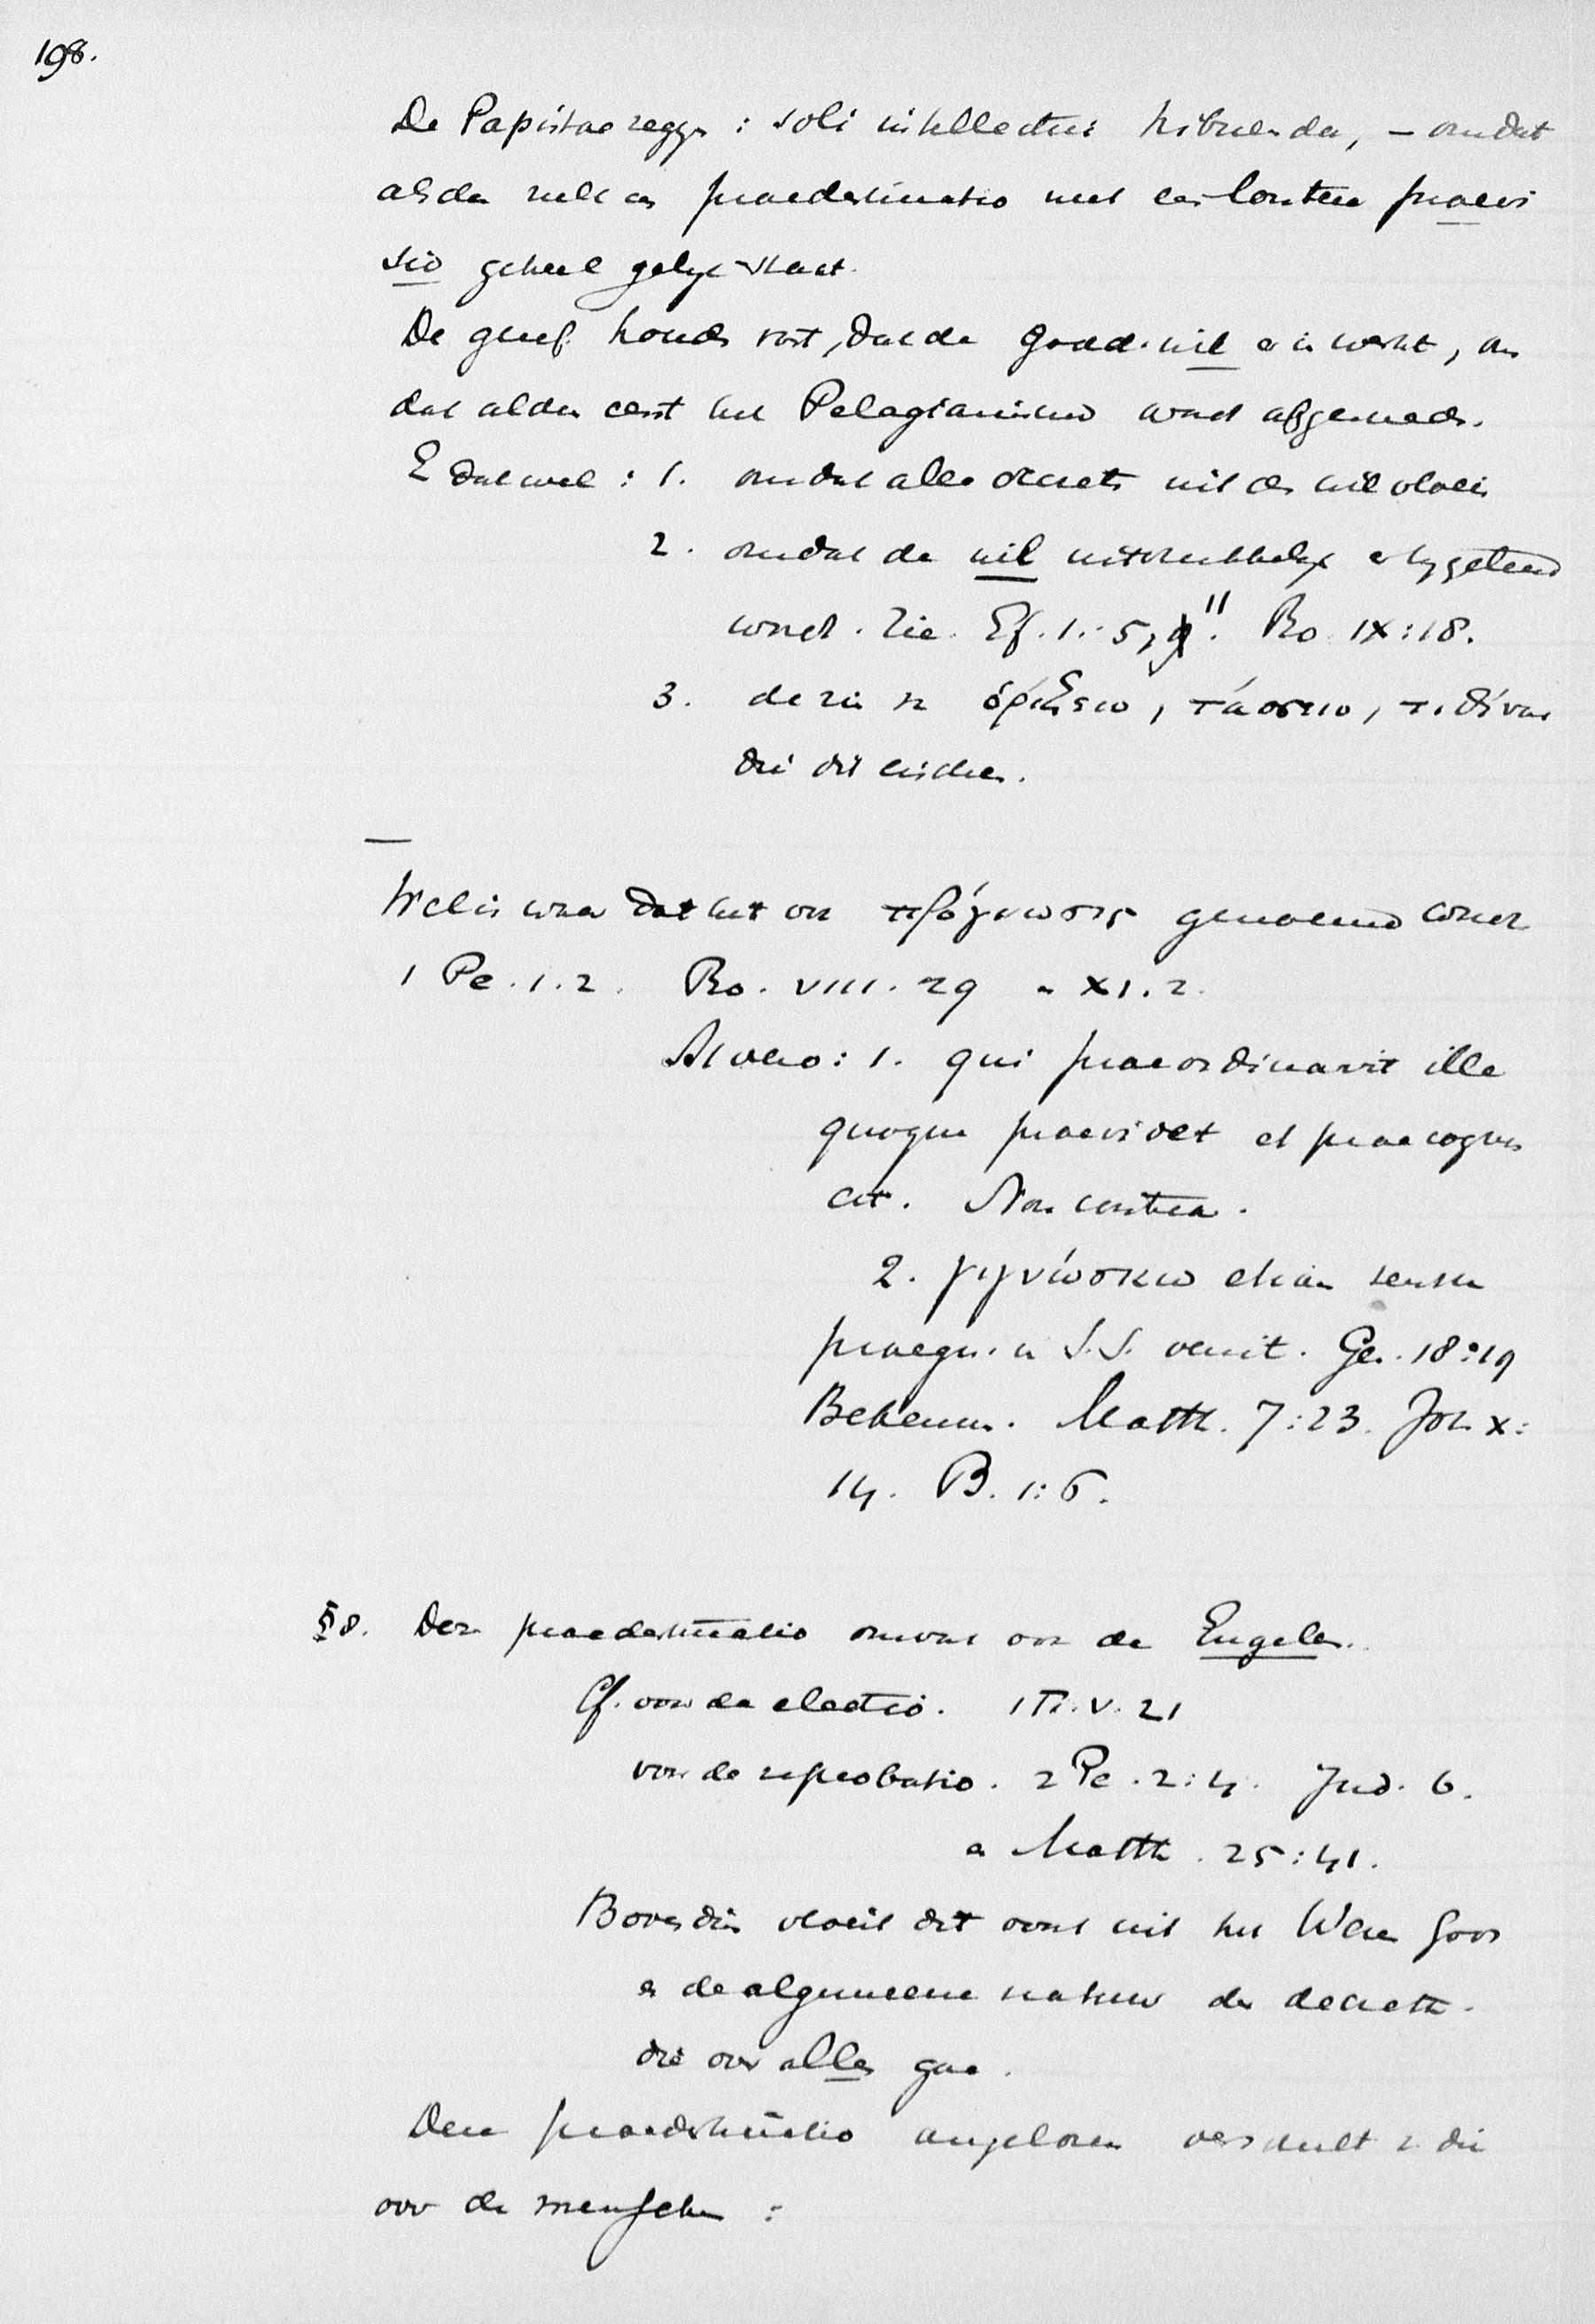 198.
De Papistae zeggen : soli intellectui tribuenda, – omdat
alsdan zulk een praedestinatio met een loutere praevi
sio geheel gelyk staat.
De geref. houden vast, dat de Godd. wil er in werkt, en
dat aldus eerst het Pelagianisme wordt afgesneden.
En dat wel : 1. omdat alle decreten uit den wil vloeien
2. omdat de wil uitdrukkelyk er by getekend
wordt. Zie Ef. 1:5, 11. Ro IX:18.
3. de zin v. ὁρίζειν, τάσσειν, τιθέναι
die dit eischen.
—
Wel is waar dat het ook πρόγνωσις genoemd wordt
1 Pe. 1.2. Ro. VIII. 29 en XI. 2.
At vero : 1. qui praeordinavit ille
quoque praevidet et praecognos
cit. Non contra.
2. γιγνώσκειν etiam sensu
praegn. in S.S. venit. Gen. 18:19
Bekennen. Matth. 7:23. Joh X:
14. Ps. 1:6.
§ 8. Deze praedestinatio omvat ook de Engelen.
Cf. voor de electio. 1 Ti. V. 21
voor de reprobatio. 2 Pe. 2:4. Jud. 6.
en Matth. 25:41.
Bovendien vloeit dit voort uit het Wezen Gods
en de algemeene natuur der decreten
die over alles gaan.
Deze praedestinatio angelorum verschilt v. die
over de menschen :